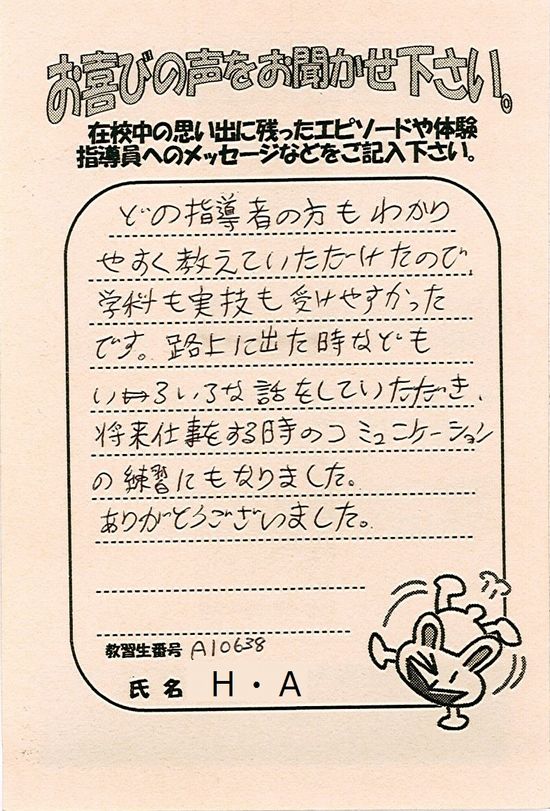 お喜びの声をお聞かせ下さい。
在校中の思い出に残ったエピソードや体験
指導員へのメッセージなどをご記入下さい。
どの指導者の方もわかり
やすく教えていただけたので、
学科も実技も受けやすかった
です。路上に出た時なども
いろいろな話をしていただき、
将来仕事をする時のコミュニケーション
の練習にもなりました。
ありがとうございました。
教習生番号 A10638
氏名 H・A